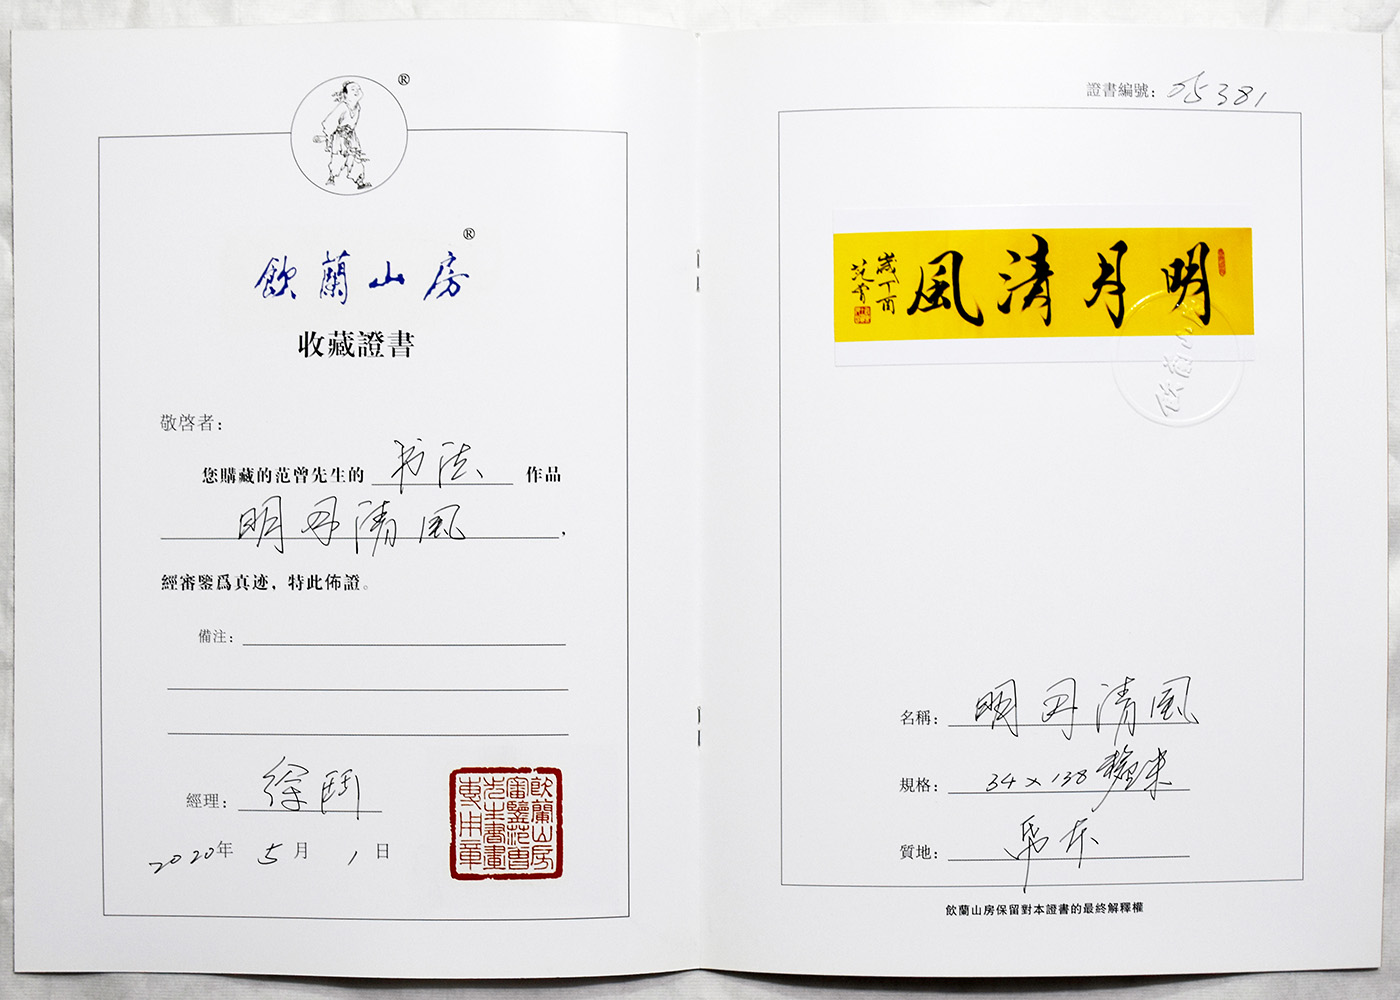 ®
飲蘭山房®
收藏證書
敬啓者：
您購藏的范曾先生的 书法 作品
明月清風，
經審鑒爲真迹，特此佈證。
備注：
經理：徐鬥
2020年 5 月 1 日
飲蘭山房
審鑒范曾
先生書畫
專用章
證書編號：05381
明月清風
歲丁酉
范曾
飲蘭山房
名稱：明月清風
規格：34×138 釐米
質地：纸本
飲蘭山房保留對本證書的最終解釋權